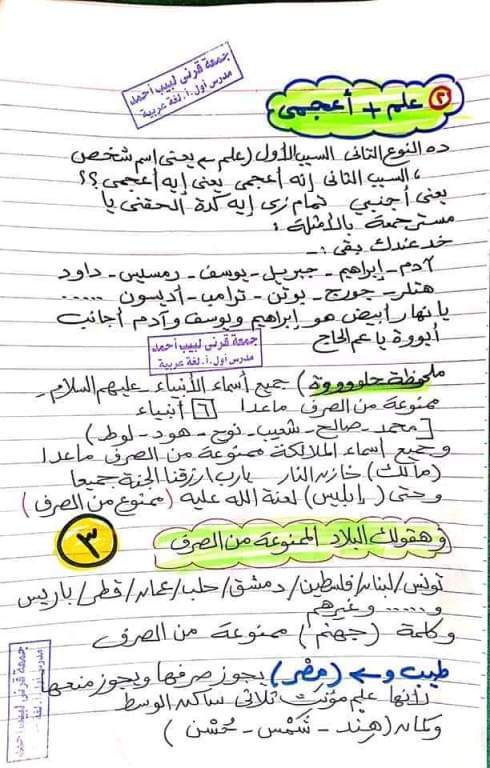 جمعة قرنى لبيب أحمد
مدرس أول.أ.لغة عربية
٢ علم + أعجمى
ده النوع التانى السبب الأول (علم يعنى اسم شخص
، السبب التانى إنه أعجمى يعنى إيه أعجمى؟؟
يعنى أجنبي تمام زى إيه كدة الحقنى يا
مستر جمعة بالأمثلة :
خد عندك بقى :-
آدم - إبراهيم - جبريل - يوسف - رمسيس - داود
هتلر - جورج - بوتن - ترامب - أديسون .....
يا نهار أبيض هو إبراهيم ويوسف وآدم أجانب
أيووة يا عم الحاج
جمعة قرنى لبيب أحمد
مدرس أول.أ.لغة عربية
ملحوظة حلوووة) جميع أسماء الأنبياء عليهم السلام -
ممنوعة من الصرف ماعدا ٦ أنبياء
[محمد - صالح - شعيب - نوح - هود - لوط)
وجميع أسماء الملائكة ممنوعة من الصرف ماعدا
(مالك) خازن النار يارب ارزقنا الجنة جميعا
وحتى (إبليس) لعنة الله عليه (ممنوع من الصرف)
وهقولك البلاد الممنوعة من الصرف ٣
تونس / لبنان / فلسطين / دمشق / حلب / عمان / قطر / باريس
و..... وغيرهم
وكلمة (جهنم) ممنوعة من الصرف
طيب و (مصْر) يجوز صرفها ويجوز منعها
لأنها علم مؤنث ثلاثى ساكن الوسط
وكمان (هِنْد - شَمْس - حُسْن)
جمعة قرنى لبيب أحمد
مدرس أول.أ.لغة عربية